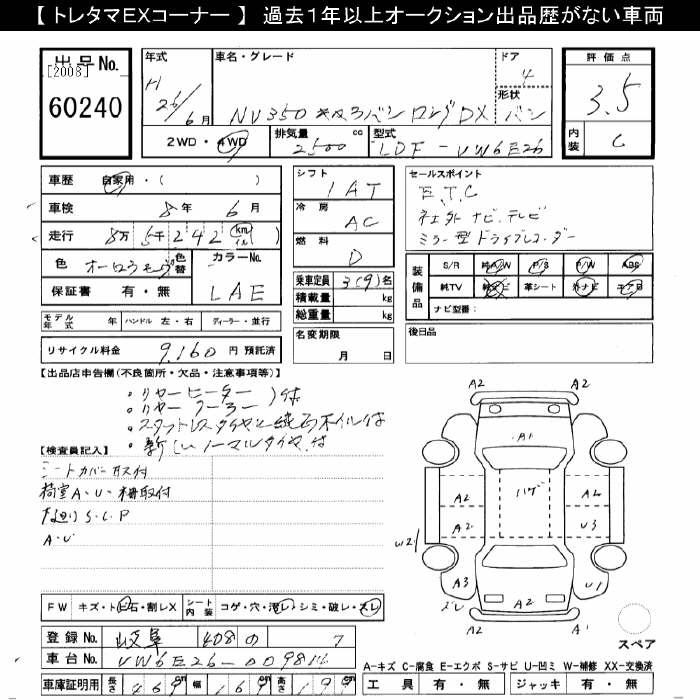 【トレタマEXコーナー】 過去1年以上オークション出品歴がない車両
出品No.
[2008]
60240
年式
H 26/6月
車名・グレード
NV350 キャラバン ロングDX
ドア
4
形状
バン
2WD・4WD
排気量
2500 cc
型式
LDF-VW6E26
評価点
3.5
内装
C
車歴 自家用・( )
車検 8年 6月
走行 8万 5千 2 4 2 (km マイル)
色
色替
カラーNo.
LAE
保証書 有・無
モデル年式 年 ハンドル 左・右 ディーラー・並行
リサイクル料金 9,160 円 預託済
シフト
IAT
冷房
AC
燃料
D
乗車定員 3(9)名
積載量 kg
総重量 kg
名変期限
月 日
セールスポイント
E.T.C
社外ナビ.テレビ
ミラー型ドライブレコーダー
装備品
S/R 純A/W P/S P/W ABS
純TV 純ナビ 革シート 外ナビ エアB
ナビ型番:
後日品
【出品店申告欄(不良箇所・欠品・注意事項等)】
・リヤーヒーター
・リヤークーラー )付
・スタットレスタイヤと純正ホイル付
・新しいノーマルタイヤ.付
【検査員記入】
シートカバー付
荷室A・U・棚取付
S.C.P
A・U
FW キズ・トビ石・割レX
シート内装 コゲ・穴・汚レ・シミ・破レ・スレ
登録No. 岐阜 408 の 7
車台No. VW6E26-
車庫証明用 長さ 469 幅 169 高さ 199
A2
A2
A1
ハゲ
A2
A2
A2
U3
W2
A3
ズレ
U1
A2
A2
スペア
A-キズ C-腐食 E-エクボ S-サビ U-凹ミ W-補修 XX-交換済
工具 有・無 ジャッキ 有・無